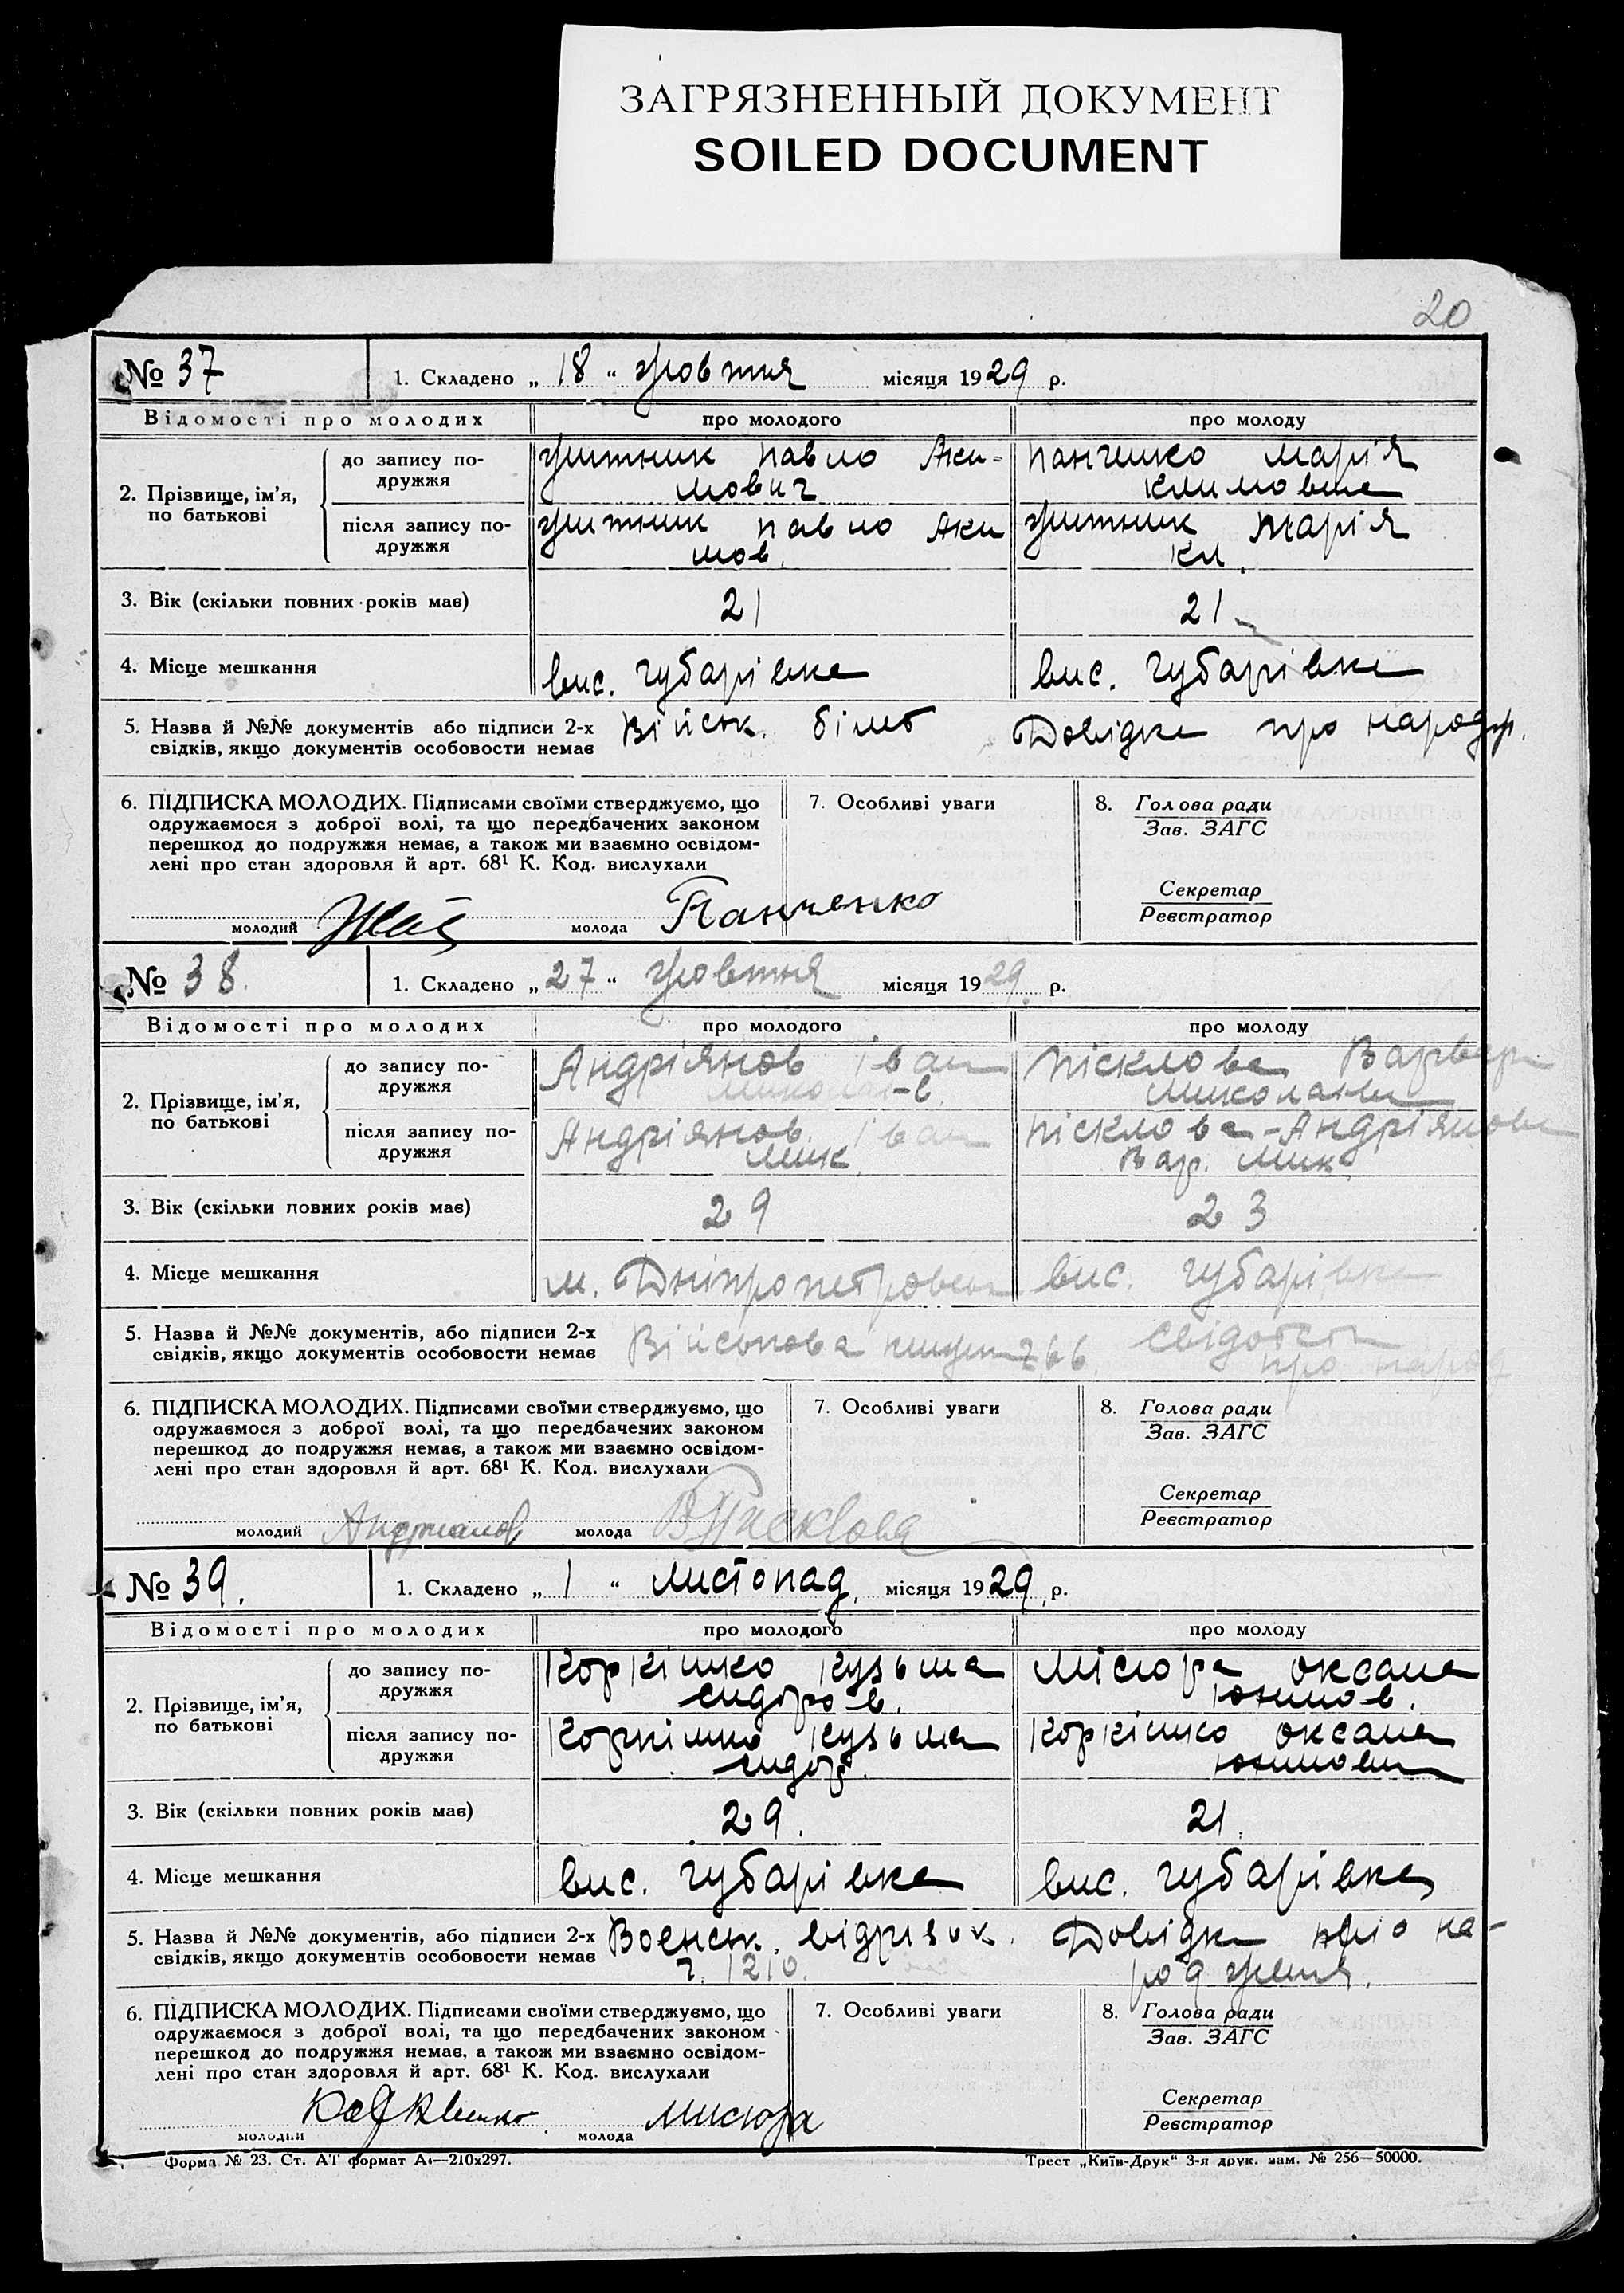 ЗАГРЯЗНЕННЫЙ ДОКУМЕНТ
SOILED DOCUMENT
20
№ 37
1. Складено „ 18 “ жовтня місяця 1929 р.
Відомості про молодих
про молодого
про молоду
2. Прізвище, ім’я,
по батькові
до запису по-
дружжя
Житник Павло Аки-
мович
Панченко Марія
Климовна
після запису по-
дружжя
Житник Павло Аки
мов.
Житник Марія
Кл.
3. Вік (скільки повних років має)
21
21
4. Місце мешкання
вис. Губарівка
вис. Губарівка
5. Назва й №№ документів або підписи 2-х
свідків, якщо документів особовости немає
Військ. білет
Довідка про народж.
6. ПІДПИСКА МОЛОДИХ. Підписами своїми стверджуємо, що
одружаємося з доброї волі, та що передбачених законом
перешкод до подружжя немає, а також ми взаємно освідом-
лені про стан здоровля й арт. 68¹ К. Код. вислухали
молодий
молода Панченко
7. Особливі уваги
8. Голова ради
Зав. ЗАГС
Секретар
Реєстратор
№ 38.
1. Складено „ 27 “ жовтня місяця 1929 р.
Відомості про молодих
про молодого
про молоду
2. Прізвище, ім’я,
по батькові
до запису по-
дружжя
Андріянов Іван
Микола-в.
Пісклова Варвара
після запису по-
дружжя
Андріянов Іван
Мик.
Пісклова-Андріянова
Вар. Мик.
3. Вік (скільки повних років має)
29
23
4. Місце мешкання
м. Дніпропетровськ
вис. Губарівка
5. Назва й №№ документів, або підписи 2-х
свідків, якщо документів особовости немає
Військова 266.
про народ
6. ПІДПИСКА МОЛОДИХ. Підписами своїми стверджуємо, що
одружаємося з доброї волі, та що передбачених законом
перешкод до подружжя немає, а також ми взаємно освідом-
лені про стан здоровля й арт. 68¹ К. Код. вислухали
молодий Андрианов
молода ВПисклова
7. Особливі уваги
8. Голова ради
Зав. ЗАГС
Секретар
Реєстратор
№ 39.
1. Складено „ 1 “ листопад. місяця 1929 р.
Відомості про молодих
про молодого
про молоду
2. Прізвище, ім’я,
по батькові
до запису по-
дружжя
Коркішко Кузьма
Сидоров.
Місюра Оксана
Юхимов.
після запису по-
дружжя
Коркішко Кузьма
Сидор.
Коркішко Оксана
Юхимовн
3. Вік (скільки повних років має)
29.
21.
4. Місце мешкання
вис. Губарівка
вис. Губарівка
5. Назва й №№ документів, або підписи 2-х
свідків, якщо документів особовости немає
Воєнськ. відризок.
ч. 1210.
Довідка про на-
родження.
6. ПІДПИСКА МОЛОДИХ. Підписами своїми стверджуємо, що
одружаємося з доброї волі, та що передбачених законом
перешкод до подружжя немає, а також ми взаємно освідом-
лені про стан здоровля й арт. 68¹ К. Код. вислухали
молодий
молода Мисюра
7. Особливі уваги
8. Голова ради
Зав. ЗАГС
Секретар
Реєстратор
Форма № 23. Ст. АТ формат А4—210х297.
Трест „Київ-Друк“ 3-я друк. зам. № 256—50000.